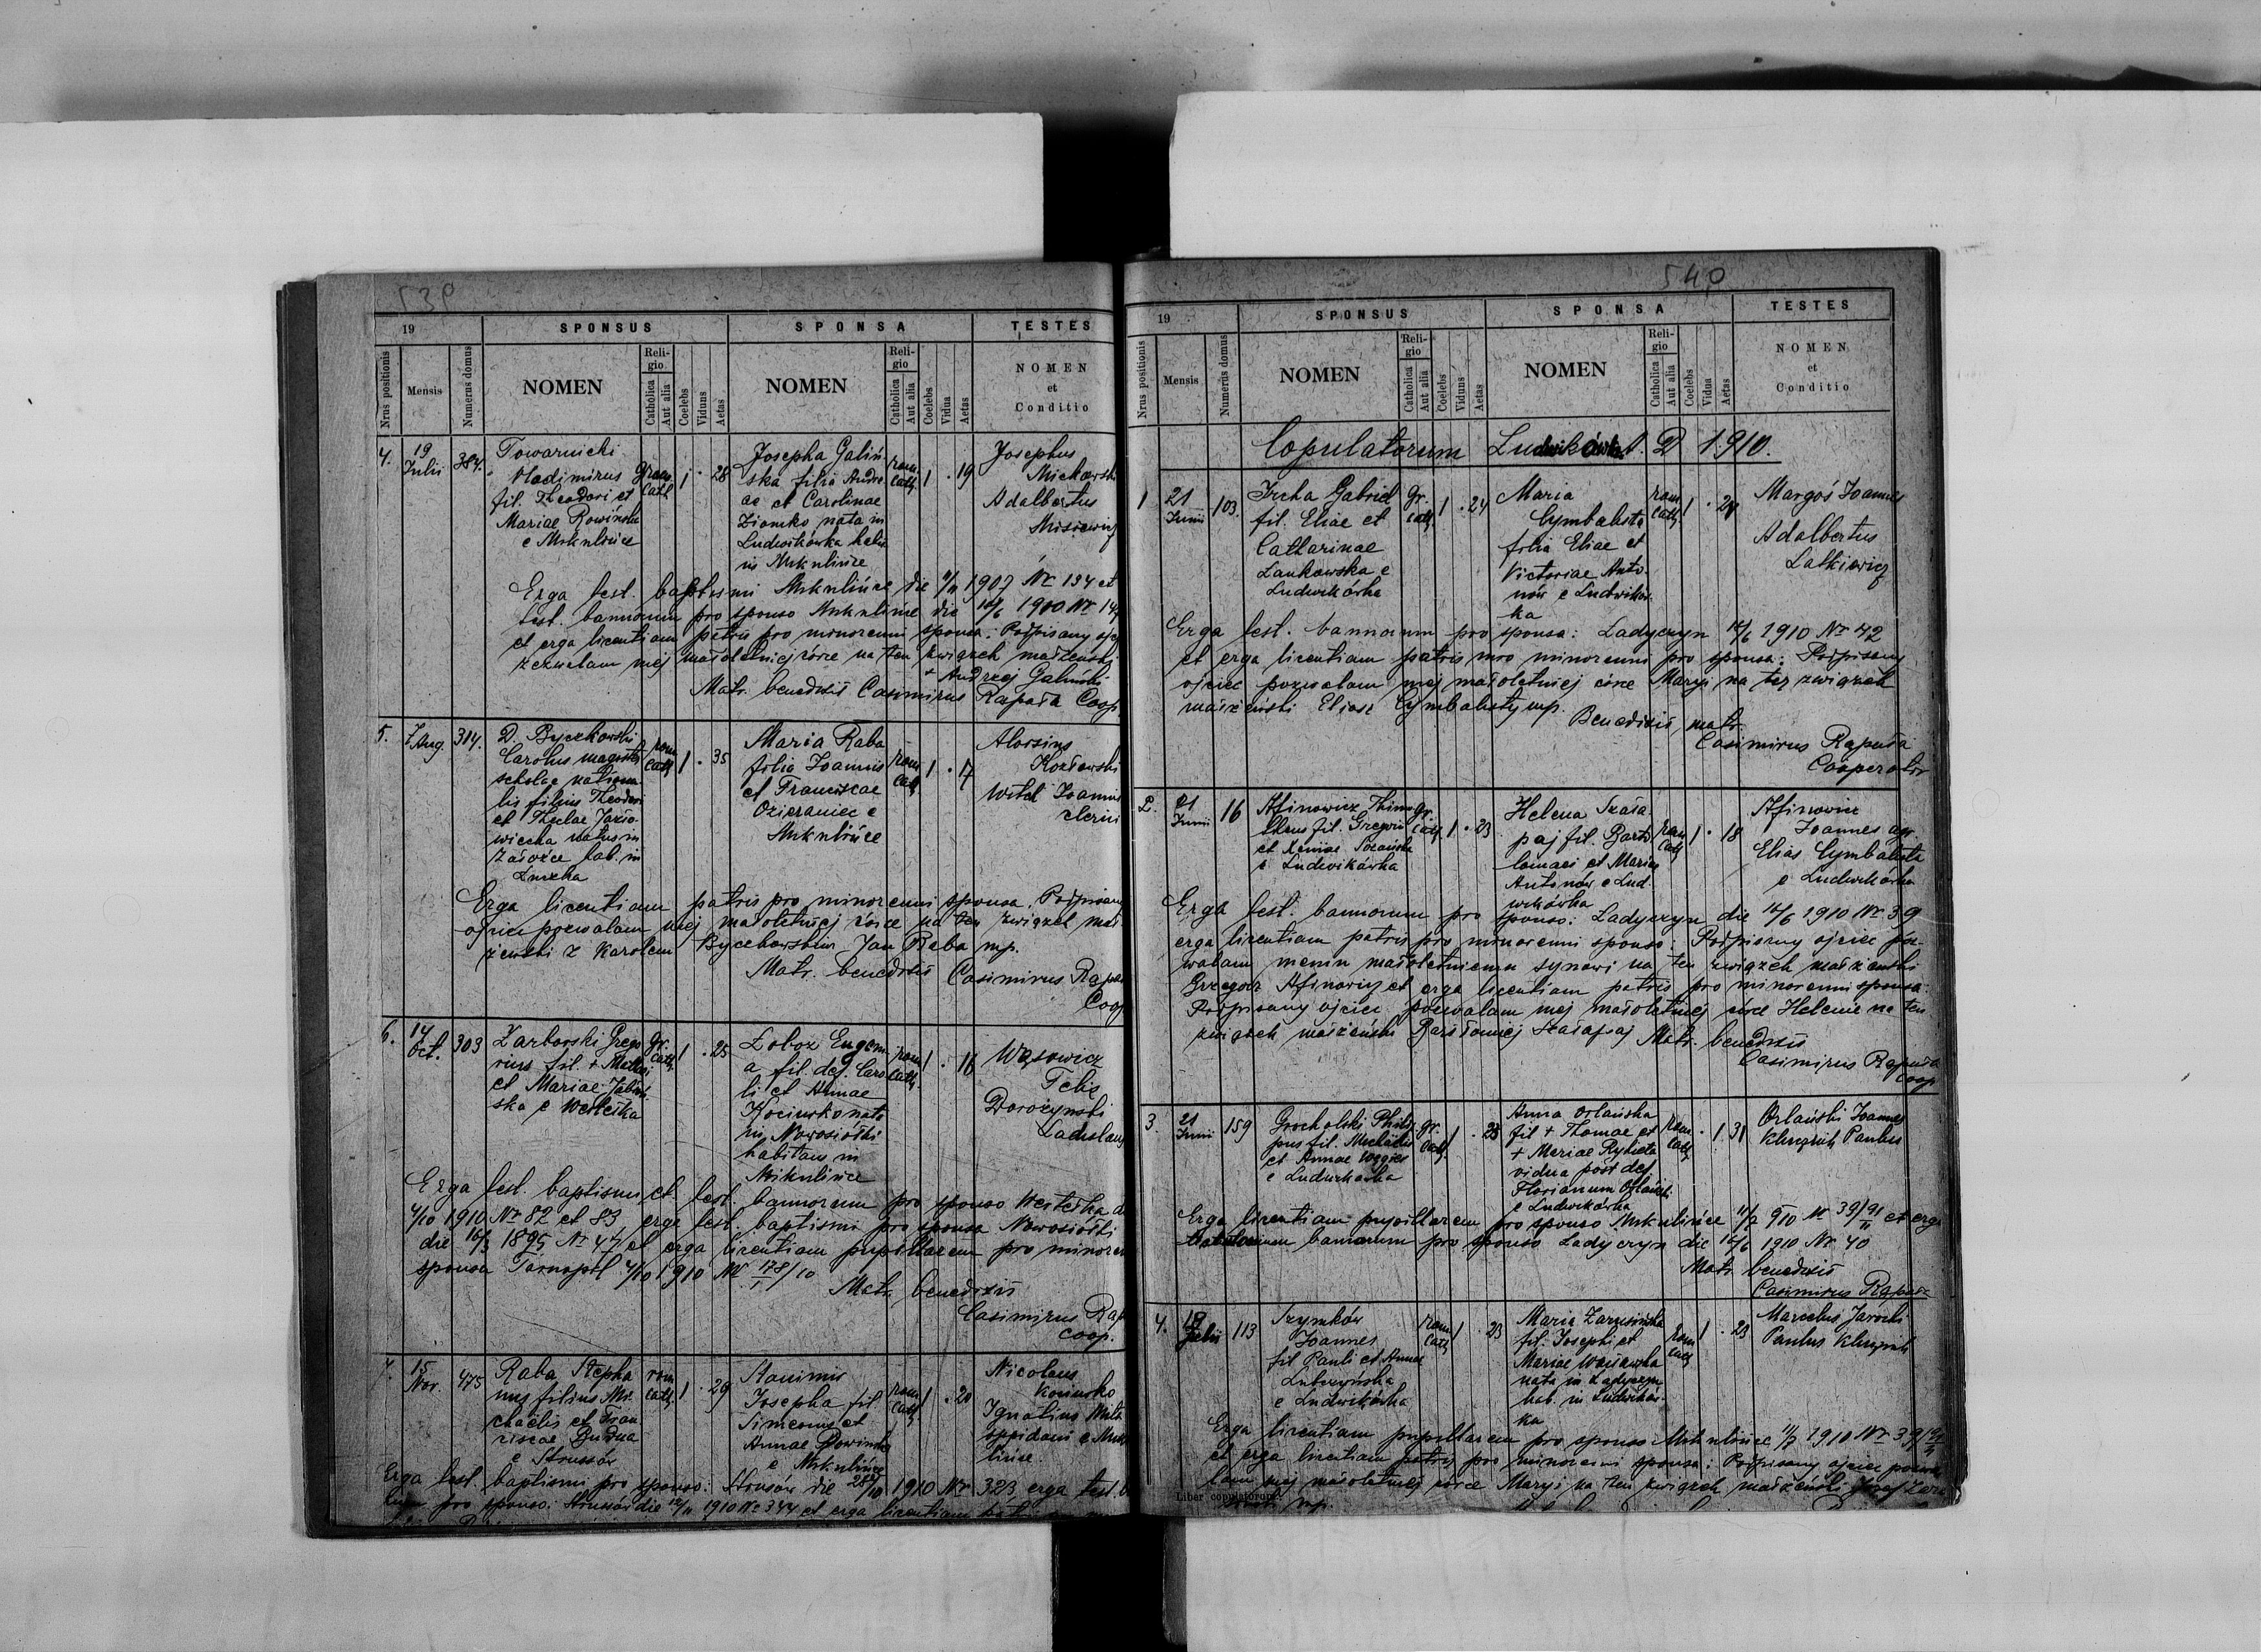 539
19
SPONSUS
SPONSA
TESTES
Nrus positionis
Mensis
Numerus domus
NOMEN
Religio
Catholica
Aut alia
Coelebs
Viduus
Aetas
NOMEN
Religio
Catholica
Aut alia
Coelebs
Vidua
Aetas
NOMEN
et
Conditio
4.
19
Julii
384.
Towarnicki
Vladimirus
fil. Theodori et
Mariae Rowińska
e Mikulińce
graec.
cath
1 . 28
Josepha Galiń
ska filia Andre
ae et Carolinae
Ziomko nata in
Ludwikówka
in Mikulińce
rom.
cath.
1 . 19
Josephus
Adalbertus
Misiewicz
Erga test. baptismi Mikulińce die 1907 Nr 134 et
test. bannorum pro sponso Mikulińce die 1910 Nr
et erga licentiam patris pro minorenni sponsa: Podpisany
zezwalam mej małoletniej córce na ten związek małżeński
+ Andrzej Galiński
Matr. benedixit Casimirus Rapała Coop
5.
7 Aug.
314.
D. Byczkowski
Carolus magister
scholae nationa
lis filius Theodori
et Theclae
wiecka natus in
Załoźce hab. in
Luczka
rom
cath
1 . 35
Maria Raba
filia Joannis
et Franciscae
Ozieraniec e
Mikulińce
rom
cath
1 . 17
Aloisius
Kozłowski
Witek Joannes
Erga licentiam patris pro minorenni sponsa. Podpisany
ojciec pozwalam mej małoletniej córce na ten związek mał
żeński z Karolem Byczkowskim Jan Raba mp.
Matr. benedixit Casimirus
Coop
6.
14
Oct.
303
Zarborski Grego
rius fil. +
et Mariae
ska e
gr.
cath.
1 . 25
Łoboz Eugeni
a fil. def. Caro
li et Annae
Kociurko nata
in Nowosiółki
habitans in
Mikulińce
rom
cath
1 . 16
Wąsowicz
Felix
Dorożynski
Ladislaus
Erga test. baptismi et test. bannorum pro sponso
4/10 1910 Nr 82 et 83, erga test. baptismi pro sponsa Nowosiółki
die 16/3 1895 Nr 47 et erga licentiam pupillarem pro
sponsa Tarnopol 4/10 1910 Nr 178/10
Matr. benedixit
Casimirus
coop.
7.
15
Nov.
475
Raba Stepha
nus filius Mi
chaelis et Fran
ciscae Dudua
e Strussów
rom
cath.
1 . 29
Stanimir
Josepha fil
Simeonis et
Annae Rowinska
e Mikulińce
rom
cath
1 . 20
Nicolaus
Kociurko
Ignatius
oppidani e
lińce.
Erga test. baptismi pro sponso: Strusów die 1910 Nr 323 erga test.
pro sponso: Strusów die 1910 Nr 344 et erga licentiam
540
19
SPONSUS
SPONSA
TESTES
Nrus positionis
Mensis
Numerus domus
NOMEN
Religio
Catholica
Aut alia
Coelebs
Viduus
Aetas
NOMEN
Religio
Catholica
Aut alia
Coelebs
Vidua
Aetas
NOMEN
et
Conditio
Copulatorum Ludwikówka A. D 1910.
1
21
Junii
103.
Ircha Gabriel
fil. Eliae et
Catharinae
Lankowska e
Ludwikówka
gr.
cath.
1 . 24
Maria
Cymbalista
filia Eliae et
Victoriae Anto
nów e Ludwików
ka
rom
cath.
1 .
Margoś Joannes
Adalbertus
Latkiewicz
Erga test. bannorum pro sponsa: Ladyczyn 12/6 1910 Nr 42
et erga licentiam patris pro minorenni pro sponsa: Podpisany
ojciec pozwalam mej małoletniej córce Maryi na tez związek
małżeński Eliasz Cymbalisty mp.
Benedixit, matr.
Casimirus Rapała
Cooperator
2.
21
Junii
16
Afinowicz Thimo
theus fil. Gregorii
et Xeniae
e Ludwikówka
gr.
cath.
1 . 23
Helena Szała
paj fil. Barto
lomaei et Mariae
Antonów e Lud
wikówka
rom
cath
1 . 18
Afinowicz
Joannes agr.
Elias Cymbalista
e Ludwikówka
Erga test. bannorum pro sponso: Ladyczyn die 12/6 1910 Nr 39
erga licentiam patris pro minorenni sponso: Podpisany ojciec poz
walam memu małoletniemu synowi na ten związek małżeński
Grzegorz Afinowicz et erga licentiam patris pro minorenni sponsa:
Podpisany ojciec pozwalam mej małoletniej córce Helenie na ten
związek małżeński Bartłomiej Szałapaj Matr. benedixit
Casimirus Rapała
coop
3.
21
Junii
159
Grocholski Philip
pus fil. Michaelis
et Annae
e Ludwikówka
gr.
cath.
1 . 28
Anna Orlańska
fil + Thomae et
+ Mariae Rybicka
vidua post def.
Florianum Orlański
e Ludwikówka
rom
cath
. 1 31
Orlański Joannes
Paulus
Erga licentiam pupillarem pro sponso Mikulińce 11/2 910 Nr 39/91 et erga
bannorum pro sponso Ladyczyn die 12/6 1910 Nr 40
Matr. benedixit
Casimirus Rapała
4.
18
Julii
113
Szymków
Joannes
fil Pauli et Annae
Lubczyńska
e Ludwikówka
rom
cath
1 . 23
Maria
fil. Josephi et
Mariae
nata in Ladyczyn
hab. in Ludwików
ka
rom
cath
1 . 23
Marcelus Jarocki
Paulus
Erga licentiam pupillarem pro sponso Mikulińce 1910 Nr 39
et erga licentiam patris pro minorenni sponsa: Podpisany ojciec pozwa
lam mej małoletniej córce Maryi na ten związek małżeński Józef
mp.
Liber copulatorum.